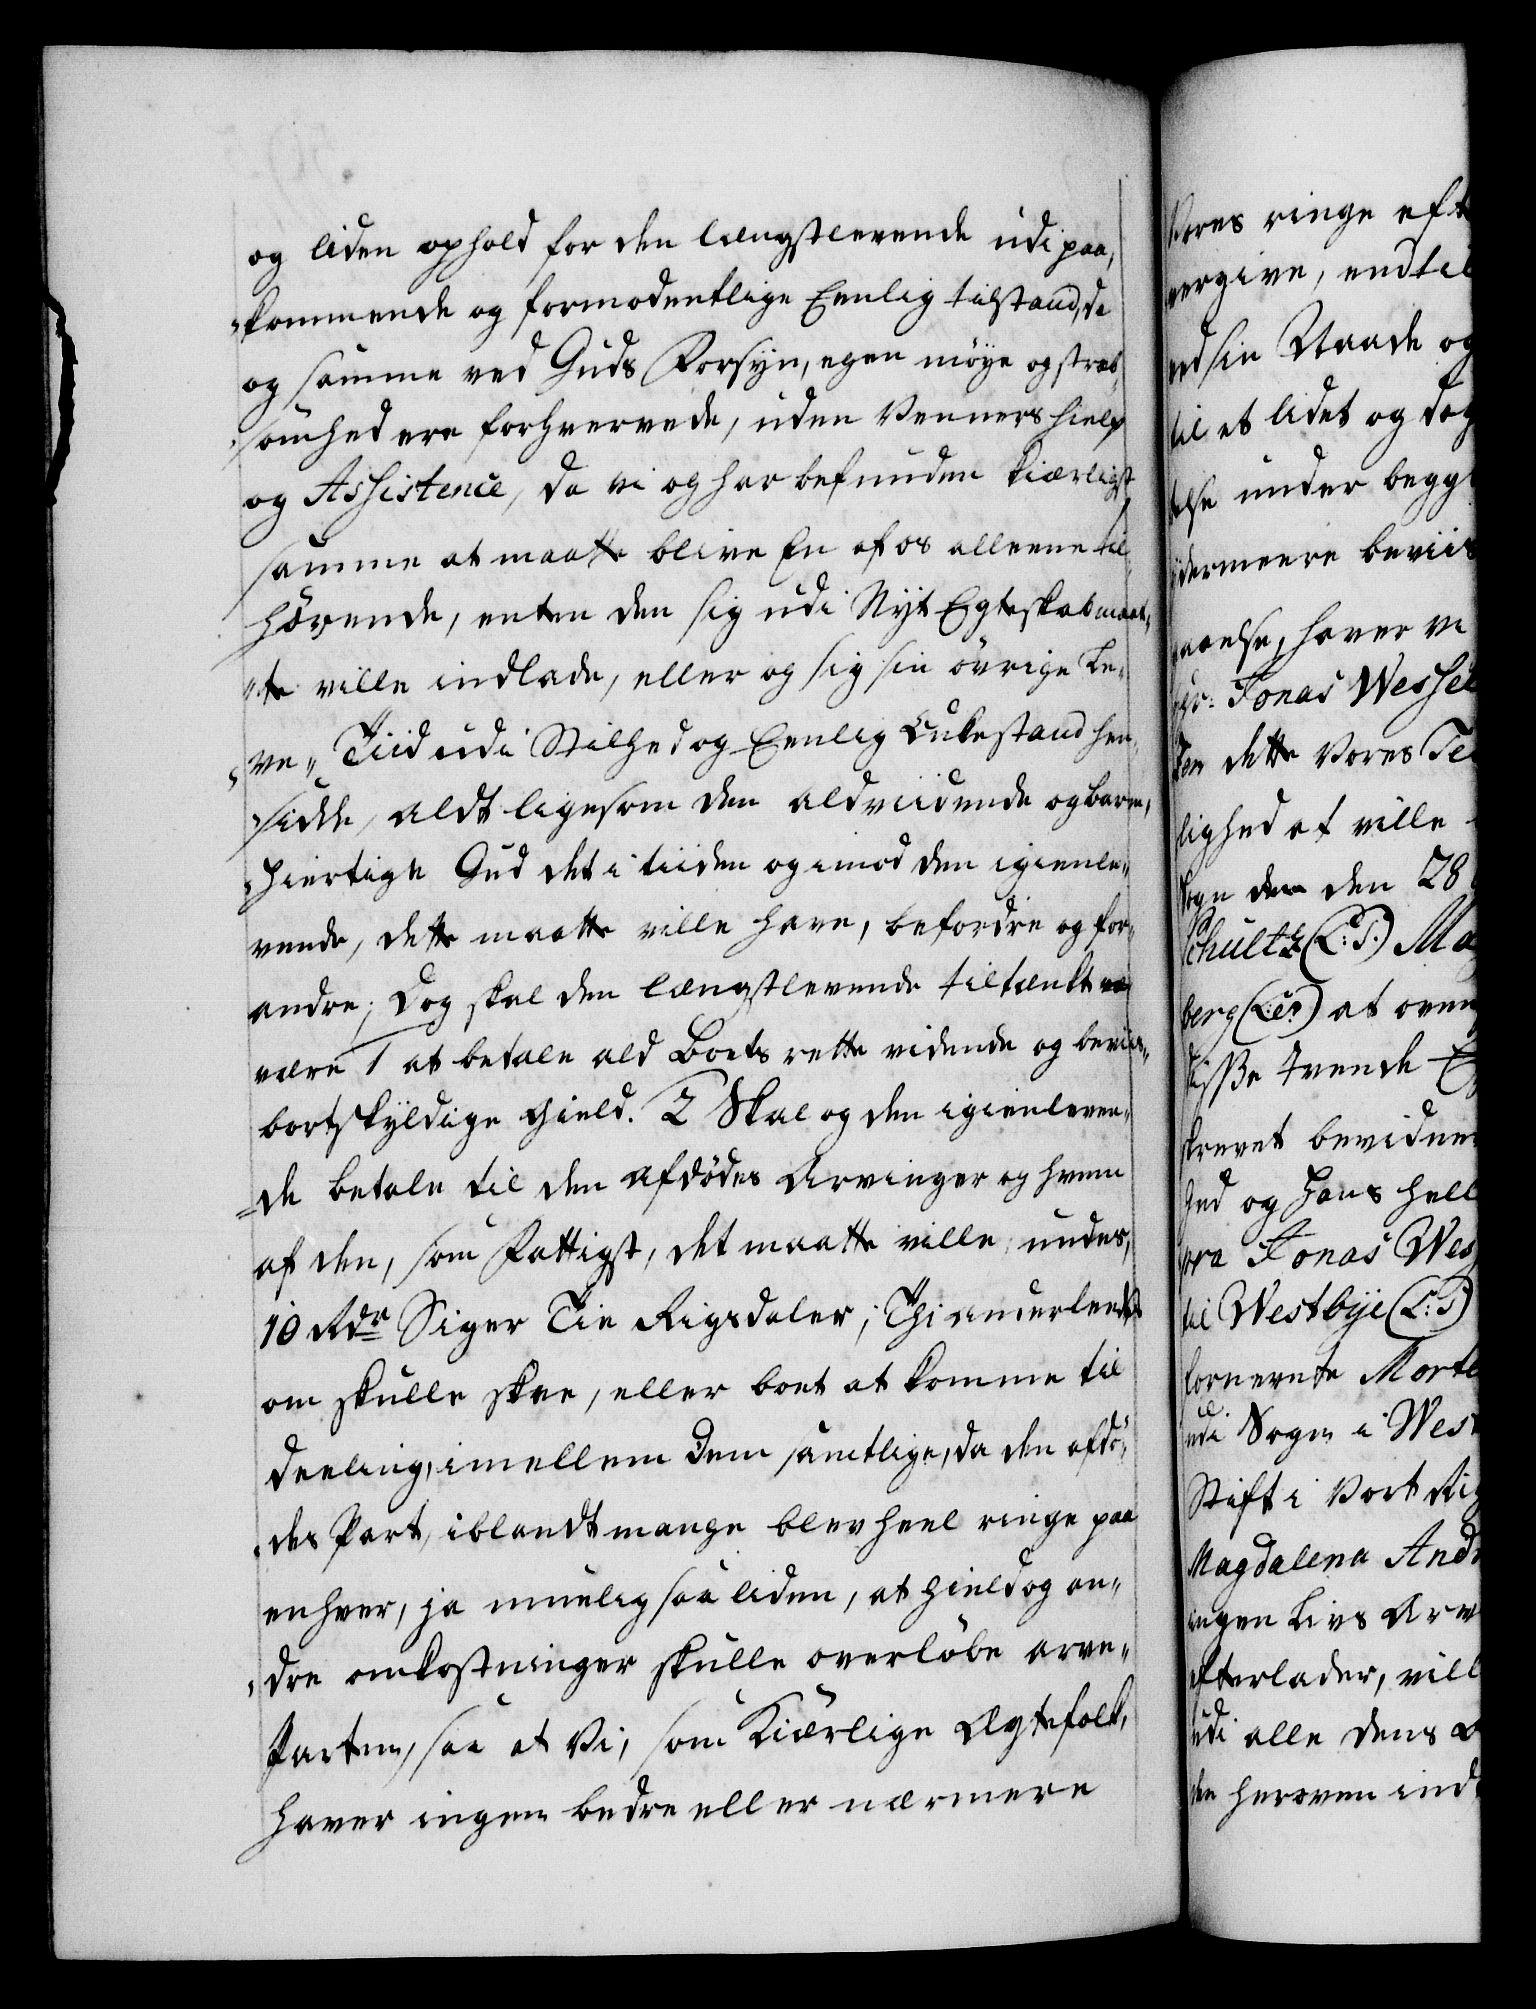 og liden ophold for den længstlevende udi paa,
„kommende og formodentlige Eenlig tilstand, da
og samme ved Guds Forsyn, egen möye og stræb„
„somhed ere forhvervede, uden Venners hielp
og Assistence, da vi og har befunden kiærligst
samme at maatte blive En af os alleene til„
hörende, enten den sig udi Nyt Egteskab maat„
„te ville indlade, eller og sig sin övrige Le„
„ve„ Tiid udi Stilhed og Eenlig Enkestand hen„
„sidde, aldt ligesom den aldviidende og barm„
„hiertige Gud det i tiiden og imod den igienle„
vende, dette maatte ville have, befordre og for„
andre; Dog skal den længstlevende tiltænkt
være 1 at betale ald Boets rette vidende og beviis„
bortskyldige Gield. 2 Skal og den igienleven„
„de betale til den afdödes Arvinger og hvem
af den, som Fattigst, det maatte ville undes,
10 Rdr Siger Tie Rigsdaler; Thi anderleedes
om skulle skee, eller boet at komme til
deeling, imellem Dem samtlige, da den afdö„
„des Part, iblandt mange blev heel ringe paa
enhver, ja muelig saa liden, at Gield og an„
„dre omkostninger skulle overlöbe arve„
Parten, saa at Vi, som Kiærlige Ægtefolk,
haver ingen bedre eller nærmere
Vores ringe eft
vergive, endtil
ved sin Naade og
til et lidet og dog
else under begge
ydermeere beviis
haver vi
Jonas Wessel
dette Vores Te
lighed at ville
Sogn den den 28
Schultz (L:S.) Ma
berg (L:S) at oven
disse tvende E
skrevet bevidne
Gud og Hans hell
Jonas Wes
til Westbye (L:S)
fornevnte Morte
udi Sogn i West
Stift i Vort Rig
Magdalena And
ingen Livs Arv
efterlader, vill
udi alle dens
heroven ind